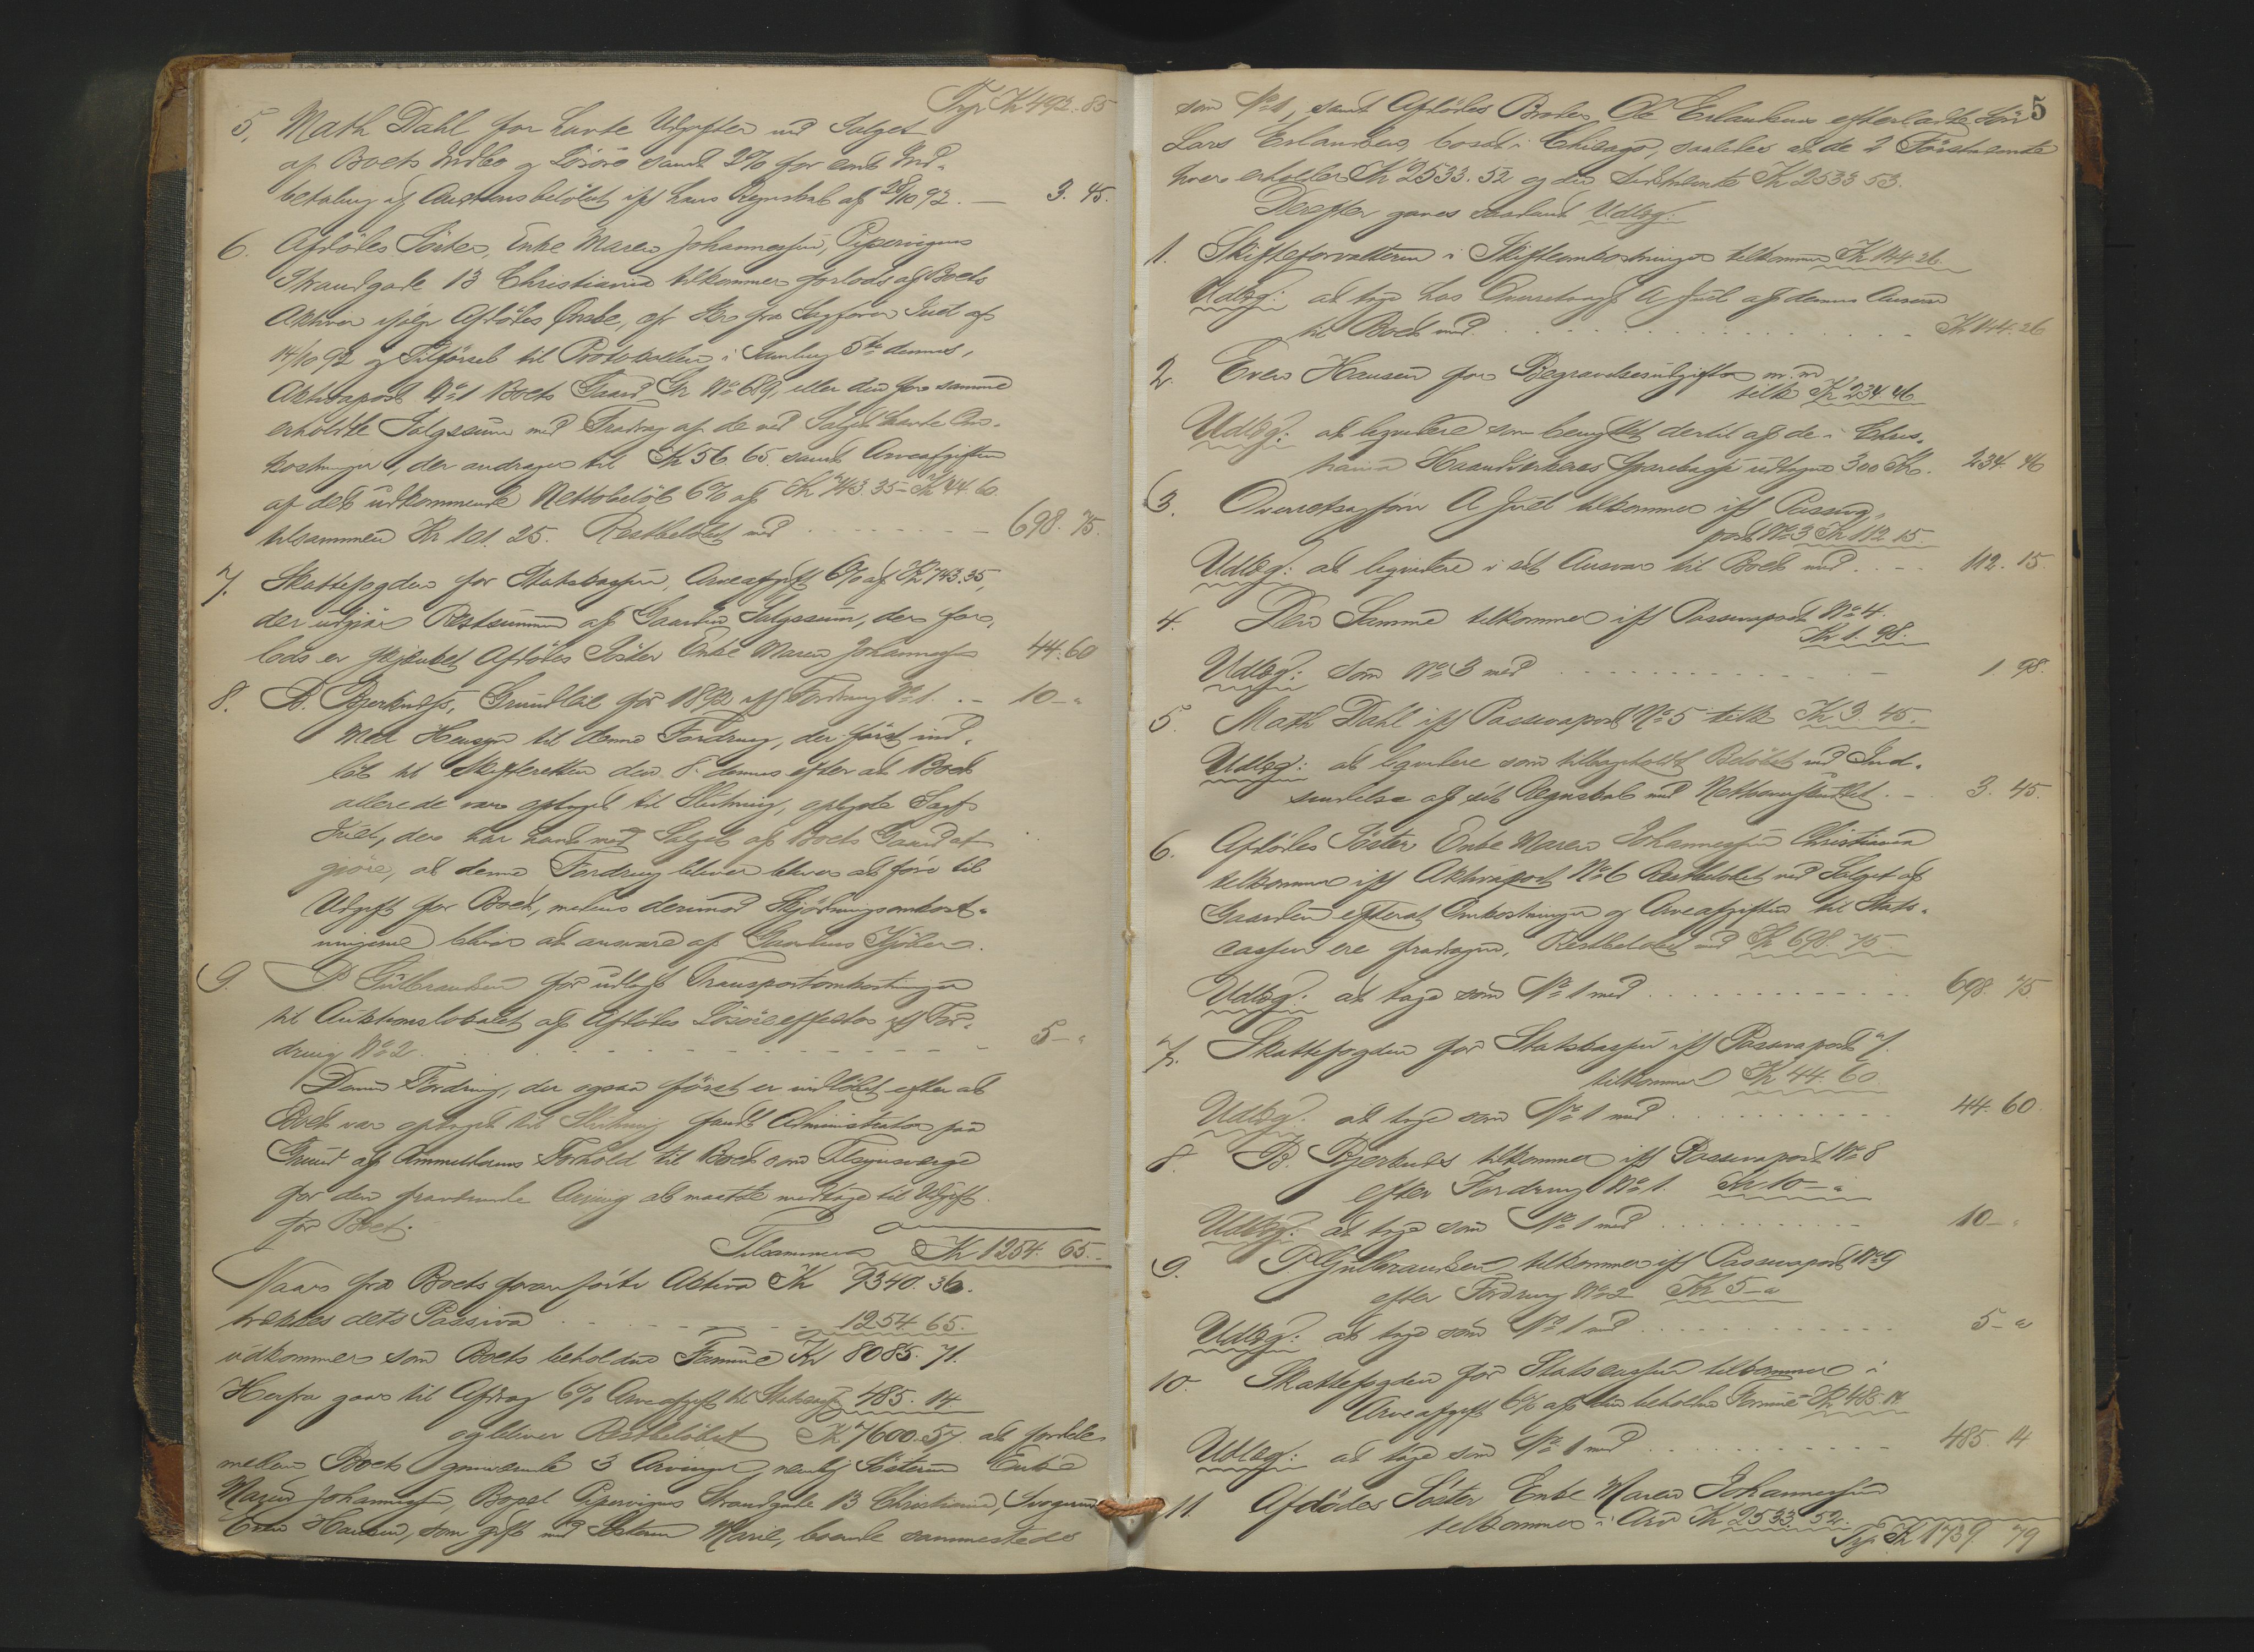 Trp Kr 492. 85
5. Math Dahl for havte Udgifter ved Salget
af Boets Indbo og Lösöre samt 2% for Ind-
betaling af Auctionsbelöbet iflg hans Regnskab af 28/10 92. — 3. 45.
6. Afdödes Söster, Enke Maren Johannessen, Pipervigens
Strandgade 13 Christiania tilkommer forlods af Boets
Aktiver ifölge Afdödes Önske, cfr Skr fra Sagförer Juel af
14/10 92 og Tilförsel til Protokollen i Samling 5te dennes,
Aktivapost No 1 Boets Gaard Gr No 689, eller den for samme
erholdte Salgssum med Fradrag af de ved Salget havte Om-
kostninger, der andrager til Kr 56. 65. samt Arveafgiften
af det udkommende Nettobelöb 6% af Kr 743. 35 = Kr 44. 60.
tilsammen Kr 101. 25. Restbelöbet med 698. 75.
7. Skattefogden for Statskassen, Arveafgift 6% af Kr 743. 35,
der udgjör Restsummen af Gaardens Salgssum, der for-
lods er skjænket Afdödes Söster Enke Maren Johannessen 44. 60
8. B. Bjerknes, Grundleie for 1892 iflg Fordring No 1. — 10 — "
Med Hensyn til denne Fordring, der först ind-
löb til Skifteretten den 8. dennes efter at Boet
allerede var optaget til Slutning, oplyste Sagf.
Juel, der har havt med Salget af Boets Gaard at
gjöre, at denne Fordring bliver at före til
Udgift for Boet, medens derimod Skjödningsomkost-
ningerne bliver at ansvare af Gaardens Kjöber.
9. P Gulbrandsen for udlagt Transportomkostninger
til Auktionslokalet af Afdödes Lösöreeffecter iflg For-
dring No 2 5 — "
Denne Fordring, der ogsaa först er indlöbet efter at
Boet var optaget til Slutning fandt Administrator paa
Grund af Anmelderens Forhold til Boet som Tilsynsværge
for den fraværende Arving at maatte medtage til Udgift
for Boet.
Tilsammen Kr 1254. 65.
Naar fra Boets foranförte Aktiva Kr 9340. 36.
trækkes dets Passiva 1254. 65.
udkommer som Boets beholdne Formue Kr 8085. 71.
Herfra gaar til Afdrag 6% Arveafgift til Statskassen 485. 14
og bliver Restbelöbet Kr 7600. 57. at fordele
mellem Boets 3 Arvinger, nemlig Sösteren Enke
Maren Johannessen, Bopæl Pipervigens Strandgade 13 Christiania, Svogeren
Even Hansen, som gift med Sösteren Marie, boende sammesteds
5
som No 1, samt Afdödes Broder Ole Erlandsens efterladte Sön
Lars Erlandsen, bosat i Chicago, saaledes at de 2 Förstnævnte
hver erholder Kr 2533. 52 og den sidstnævnte Kr 2533 53.
Derefter gaves saadant Udlæg:
1. Skifteforvalteren i Skifteomkostninger tilkommer Kr 144. 26.
Udlæg: at tage hos Overretssagf A Juel af dennes Ansvar
til Boet med Kr 144. 26
2. Even Hansen for Begravelsesudgifter m. m
tilk Kr 234. 46
Udlæg: at liquidere som benyttet dertil af de i Chris-
tiania Haandværkeres Sparebank udtagne 300 Kr. 234. 46
3. Overretssagförer A Juel tilkommer iflg Passiva-
post No 3 Kr 112 15.
Udlæg: at liquidere i sit Ansvar til Boet med 112. 15.
4. Den Samme tilkommer iflg Passivapost No 4.
Kr 1. 98.
Udlæg: som No 3 med 1. 98.
5. Math Dahl iflg Passivapost No 5 tilk Kr 3. 45.
Udlæg: at liquidere som tilbageholdt Belöbet ved Ind-
sendelse af sit Regnskab med 3. 45.
6. Afdödes Söster Enke Maren Johannessen Christiania
tilkommer iflg Aktivapost No 6 Restbelöbet ved Salget af
Gaarden efterat Omkostninger og Arveafgiften til Stats-
cassen ere fradragne, Restbelöbet med Kr 698. 75
Udlæg: at tage som No 1 med 698. 75
7. Skattefogden for Statskassen iflg Passivapost 7.
tilkommer Kr 44. 60.
Udlæg: at tage som No 1 med 44. 60
8. B. Bjerknes tilkommer iflg Passivapost No 8
efter Fordring No 1. Kr 10 — "
Udlæg: at tage som No 1 med 10 — "
9. P Gulbrandsen tilkommer iflg Passivapost No 9
efter Fordring No 2 Kr 5 — "
Udlæg: at tage som No 1 med 5 — "
10. Skattefogden for Statscassen tilkommer i
Arveafgift 6% af den beholdne Formue = Kr 485. 14.
Udlæg: at tage som No 1 med 485. 14
11. Afdödes Söster Enke Maren Johannessen
tilkommer i Arv Kr 2533. 52.
Trp. Kr 1739. 79